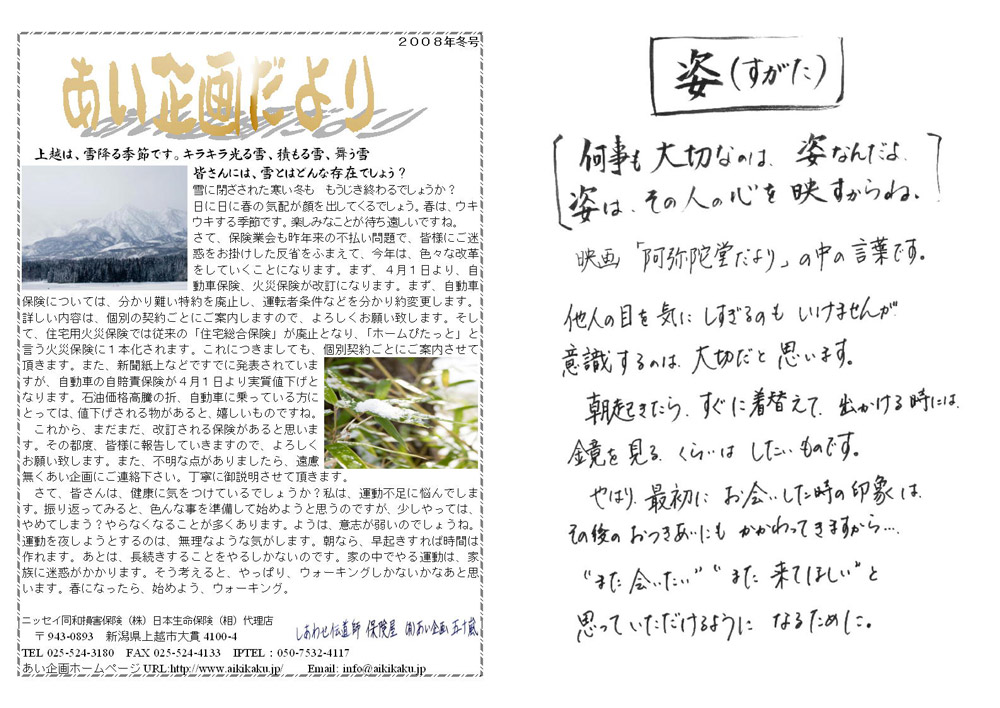 2008年冬号
あい企画だより
上越は、雪降る季節です。キラキラ光る雪、積もる雪、舞う雪
皆さんには、雪とはどんな存在でしょう?
雪に閉ざされた寒い冬も もうじき終わるでしょうか?
日に日に春の気配が顔を出してくるでしょう。春は、ウキ
ウキする季節です。楽しみなことが待ち遠しいですね。
さて、保険業会も昨年来の不払い問題で、皆様にご迷
惑をお掛けした反省をふまえて、今年は、色々な改革
をしていくことになります。まず、4月1日より、自
動車保険、火災保険が改訂になります。まず、自動車
保険については、分かり難い特約を廃止し、運転者条件などを分かり約変更します。
詳しい内容は、個別の契約ごとにご案内しますので、よろしくお願い致します。そし
て、住宅用火災保険では従来の「住宅総合保険」が廃止となり、「ホームぴたっと」と
言う火災保険に1本化されます。これにつきましても、個別契約ごとにご案内させて
頂きます。また、新聞紙上などですでに発表されていま
すが、自動車の自賠責保険が4月1日より実質値下げと
なります。石油価格高騰の折、自動車に乗っている方に
とっては、値下げされる物があると、嬉しいものですね。
これから、まだまだ、改訂される保険があると思いま
す。その都度、皆様に報告していきますので、よろしく
お願い致します。また、不明な点がありましたら、遠慮
無くあい企画にご連絡下さい。丁寧に御説明させて頂きます。
さて、皆さんは、健康に気をつけているでしょうか?私は、運動不足に悩んでしま
す。振り返ってみると、色んな事を準備して始めようと思うのですが、少しやっては、
やめてしまう?やらなくなることが多くあります。ようは、意志が弱いのでしょうね。
運動を夜しようとするのは、無理なような気がします。朝なら、早起きすれば時間は
作れます。あとは、長続きすることをやるしかないのです。家の中でやる運動は、家
族に迷惑がかかります。そう考えると、やっぱり、ウォーキングしかないかなあと思
います。春になったら、始めよう、ウォーキング。
ニッセイ同和損害保険(株)日本生命保険(相)代理店
〒943-0893 新潟県上越市大貫4100-4
しあわせ伝道師 保険屋 (有)あい企画 五十嵐
TEL 025-524-3180 FAX 025-524-4133 IPTEL：050-7532-4117
あい企画ホームページ URL:http://www.aikikaku.jp/ Email: info@aikikaku.jp
姿(すがた)
何事も大切なのは、姿なんだよ、
姿は、その人の心を映すからね。
映画「阿弥陀堂だより」の中の言葉です。
他人の目を気にしすぎるのもいけませんが
意識するのは、大切だと思います。
朝起きたら、すぐに着替えて、出かける時には、
鏡を見る、くらいはしたいものです。
やはり、最初にお会いした時の印象は、
その後のおつきあいにもかかわってきますから…
"また会いたい" "また来てほしい"と
思っていただけるようになるために。